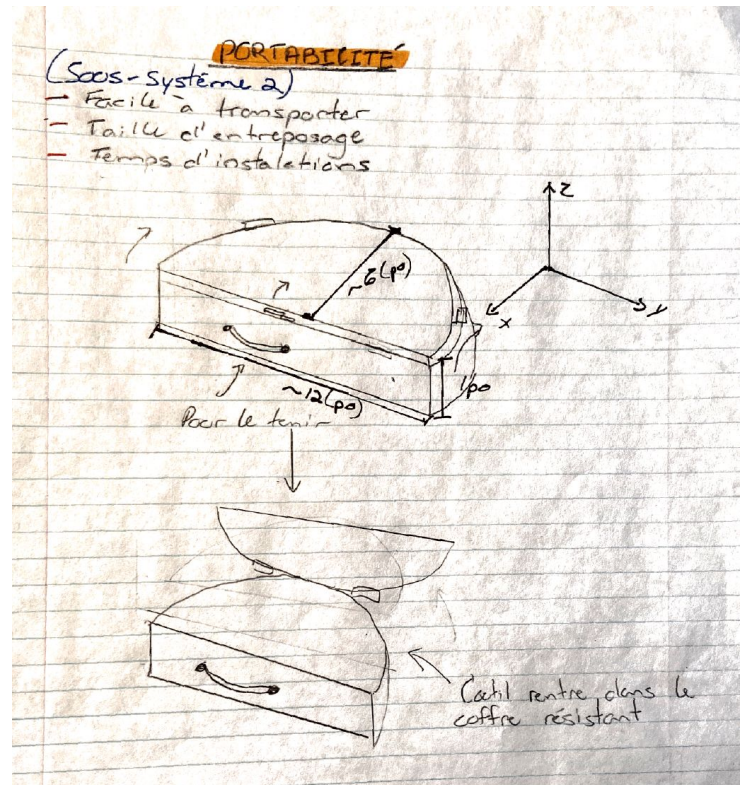 PORTABILITÉ
(Sous-système 2)
- Facile à transporter
- Taille d'entreposage
- Temps d'instalations
z
~6(po)
x
y
1po
~12(po)
Pour le tenir
L'outil rentre dans le
coffre résistant